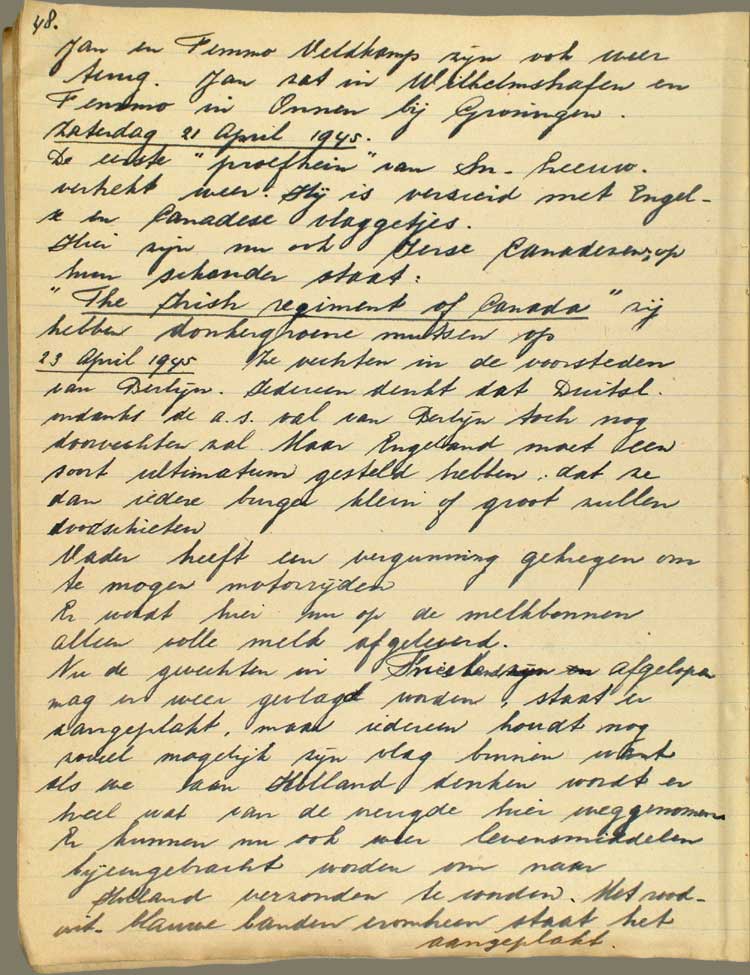 48.
Jan en Femmo Veldkamp zijn ook weer
terug. Jan zat in Wilhelmshafen en
Femmo in Onnen bij Groningen.
Zaterdag 21 April 1945.
De eerste "proeftrein" van Sn- Leeuw.
vertrekt weer. Hij is versierd met Engel-
se en Canadese vlaggetjes.
Hier zijn nu ook Ierse Canadezen, op
hun schouder staat:
"The Irish regiment of Canada" zij
hebben donkergroene mutsen op
23 April 1945 Ze vechten in de voorsteden
van Berlijn. Iedereen denkt dat Duitsl.
ondanks de a.s. val van Berlijn toch nog
doorvechten zal. Maar Engeland moet een
soort ultimatum gesteld hebben: dat ze
dan iedere burger klein of groot zullen
doodschieten
Vader heeft een vergunning gekregen om
te mogen motorrijden
Er wordt hier nu op de melkbonnen
alleen volle melk afgeleverd.
Nu de gevechten in Friesland zijn afgelopen
mag er weer gevlagd worden, staat er
aangeplakt, maar iedereen houdt nog
zoveel mogelijk zijn vlag binnen want
als we aan Holland denken wordt er
heel wat van de vreugde hier weggenomen
Er kunnen nu ook weer levensmiddelen
bijeengebracht worden om naar
Holland verzonden te worden. Met rood-
wit- blauwe banden eromheen staat het
aangeplakt.